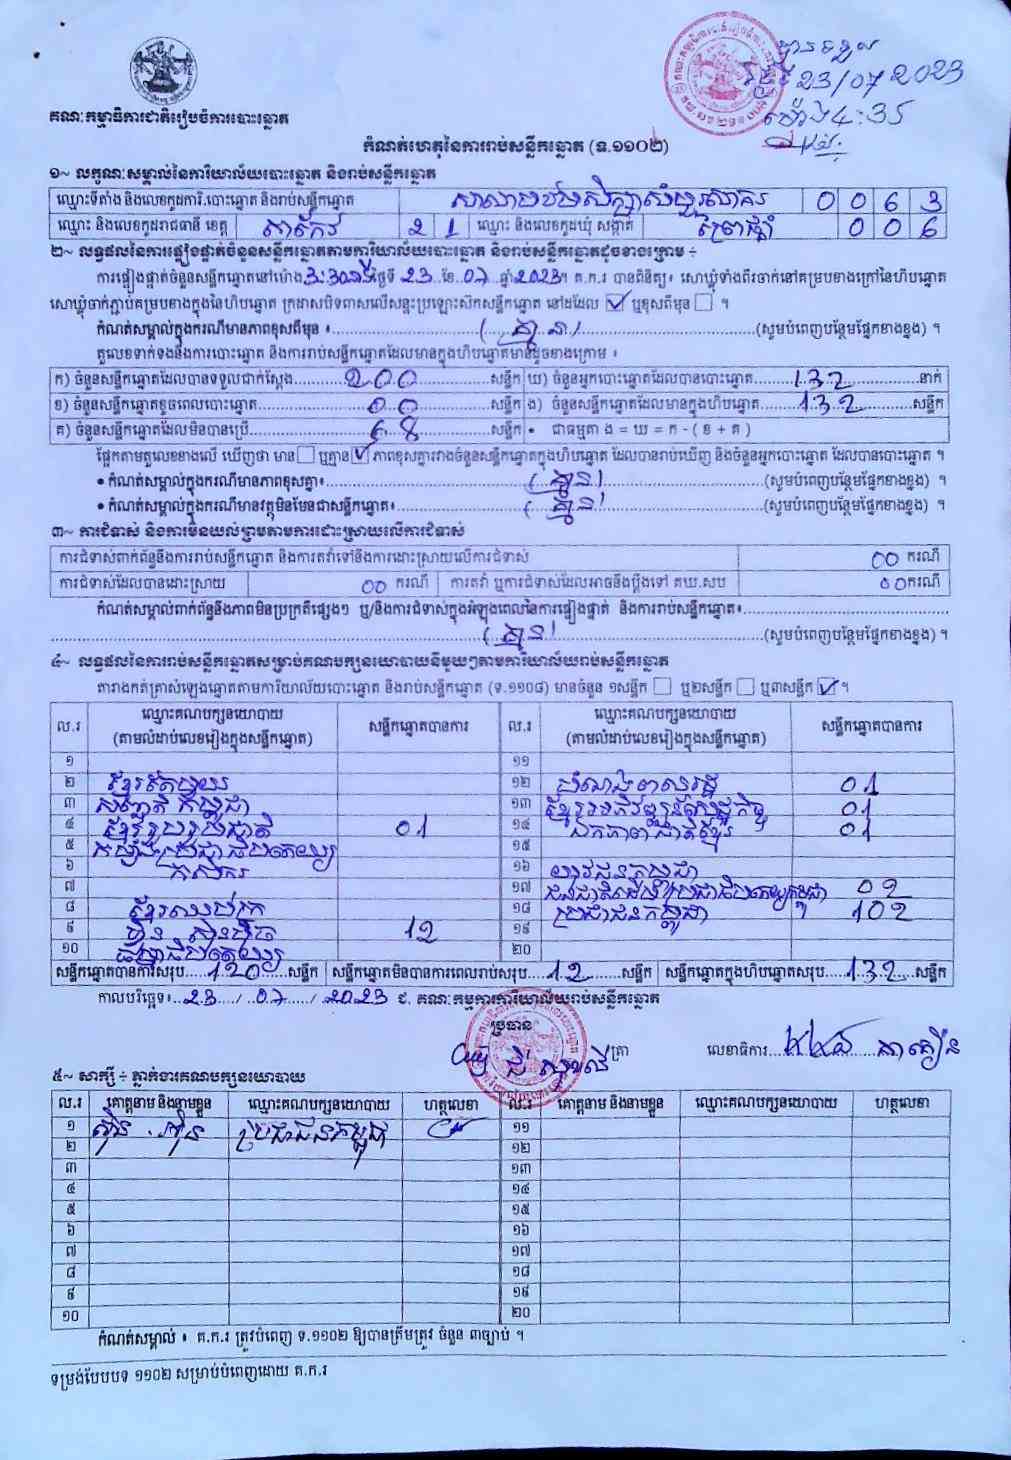 បានទទួល
ថ្ងៃទី 23/07 2023
ម៉ោង 4:35
គណៈកម្មាធិការជាតិរៀបចំការបោះឆ្នោត
កំណត់ហេតុនៃការរាប់សន្លឹកឆ្នោត (ទ.១១០២)
១~ លក្ខណៈសម្គាល់នៃការិយាល័យបោះឆ្នោត និងរាប់សន្លឹកឆ្នោត
ឈ្មោះទីតាំង និងលេខកូដការិ.បោះឆ្នោត និងរាប់សន្លឹកឆ្នោត សាលាបឋមសិក្សា 0 0 6 3
ឈ្មោះ និងលេខកូដរាជធានី ខេត្ត តាកែវ 2 1 ឈ្មោះ និងលេខកូដឃុំ សង្កាត់ ព្រៃផ្ដាំ 0 0 6
២~ លទ្ធផលនៃការផ្ទៀងផ្ទាត់ចំនួនសន្លឹកឆ្នោតតាមការិយាល័យបោះឆ្នោត និងរាប់សន្លឹកឆ្នោតដូចខាងក្រោម ÷
ការផ្ទៀងផ្ទាត់ចំនួនសន្លឹកឆ្នោតនៅម៉ោង ថ្ងៃទី 23 ខែ 07 ឆ្នាំ 2023 ។ គ.ក.រ បានពិនិត្យ៖ សោឃ្លុំទាំងពីរចាក់នៅគម្របខាងក្រៅនៃហិបឆ្នោត
សោឃ្លុំចាក់ភ្ជាប់គម្របខាងក្នុងនៃហិបឆ្នោត ក្រដាសបិទពាសលើសន្ទះប្រឡោះស៊កសន្លឹកឆ្នោត នៅដដែល ☑ ឬខុសពីមុន ☐ ។
កំណត់សម្គាល់ក្នុងករណីមានភាពខុសពីមុន ៖ (គ្មាន) (សូមបំពេញបន្ថែមផ្នែកខាងខ្នង) ។
តួលេខទាក់ទងនឹងការបោះឆ្នោត និងការរាប់សន្លឹកឆ្នោតដែលមានក្នុងហិបឆ្នោតមានដូចខាងក្រោម ៖
ក) ចំនួនសន្លឹកឆ្នោតដែលបានទទួលជាក់ស្តែង 200 សន្លឹក ឃ) ចំនួនអ្នកបោះឆ្នោតដែលបានបោះឆ្នោត 132 នាក់
ខ) ចំនួនសន្លឹកឆ្នោតខូចពេលបោះឆ្នោត 00 សន្លឹក ង) ចំនួនសន្លឹកឆ្នោតដែលមានក្នុងហិបឆ្នោត 132 សន្លឹក
គ) ចំនួនសន្លឹកឆ្នោតដែលមិនបានប្រើ 68 សន្លឹក • ជាធម្មតា ង = ឃ = ក - ( ខ + គ )
ផ្អែកតាមតួលេខខាងលើ ឃើញថា មាន ☐ ឬគ្មាន ☑ ភាពខុសគ្នារវាងចំនួនសន្លឹកឆ្នោតក្នុងហិបឆ្នោត ដែលបានរាប់ឃើញ និងចំនួនអ្នកបោះឆ្នោត ដែលបានបោះឆ្នោត ។
• កំណត់សម្គាល់ក្នុងករណីមានភាពខុសគ្នា៖ (គ្មាន) (សូមបំពេញបន្ថែមផ្នែកខាងខ្នង) ។
• កំណត់សម្គាល់ក្នុងករណីមានវត្ថុមិនមែនជាសន្លឹកឆ្នោត៖ (គ្មាន) (សូមបំពេញបន្ថែមផ្នែកខាងខ្នង) ។
៣~ ការជំទាស់ និងការមិនយល់ព្រមតាមការដោះស្រាយលើការជំទាស់
ការជំទាស់ពាក់ព័ន្ធនឹងការរាប់សន្លឹកឆ្នោត និងការតវ៉ាទៅនឹងការដោះស្រាយលើការជំទាស់ 00 ករណី
ការជំទាស់ដែលបានដោះស្រាយ 00 ករណី ការតវ៉ា ឬការជំទាស់ដែលអាចនឹងប្តឹងទៅ គឃ.សប 00 ករណី
កំណត់សម្គាល់ពាក់ព័ន្ធនឹងភាពមិនប្រក្រតីផ្សេងៗ ឬ/និងការជំទាស់ក្នុងអំឡុងពេលនៃការផ្ទៀងផ្ទាត់ និងការរាប់សន្លឹកឆ្នោត៖
(គ្មាន) (សូមបំពេញបន្ថែមផ្នែកខាងខ្នង) ។
៤~ លទ្ធផលនៃការរាប់សន្លឹកឆ្នោតសម្រាប់គណបក្សនយោបាយនីមួយៗតាមការិយាល័យរាប់សន្លឹកឆ្នោត
តារាងកត់ត្រាសំឡេងឆ្នោតតាមការិយាល័យបោះឆ្នោត និងរាប់សន្លឹកឆ្នោត (ទ.១១០៨) មានចំនួន ១សន្លឹក ☐ ឬ២សន្លឹក ☐ ឬ៣សន្លឹក ☑ ។
ល.រ ឈ្មោះគណបក្សនយោបាយ (តាមលំដាប់លេខរៀងក្នុងសន្លឹកឆ្នោត) សន្លឹកឆ្នោតបានការ ល.រ ឈ្មោះគណបក្សនយោបាយ (តាមលំដាប់លេខរៀងក្នុងសន្លឹកឆ្នោត) សន្លឹកឆ្នោតបានការ
១ ១១
២ ខ្មែរតែមួយ ១២ សំណាញ់ 01
៣ សញ្ជាតិកម្ពុជា ១៣ ខ្មែរអភិវឌ្ឍន៍សេដ្ឋកិច្ច 01
៤ ខ្មែររួបរួមជាតិ 01 ១៤ ឯកភាពជាតិខ្មែរ 01
៥ កម្លាំងប្រជាធិបតេយ្យ ១៥
៦ កសិករ ១៦ យុវជនកម្ពុជា
៧ ១៧ ជនជាតិដើមប្រជាធិបតេយ្យកម្ពុជា 02
៨ ខ្មែរឈប់ក្រ ១៨ ប្រជាជនកម្ពុជា 102
៩ ហ្វ៊ុនស៊ិនប៉ិច 12 ១៩
១០ ធម្មាធិបតេយ្យ ២០
សន្លឹកឆ្នោតបានការសរុប 120 សន្លឹក សន្លឹកឆ្នោតមិនបានការពេលរាប់សរុប 12 សន្លឹក សន្លឹកឆ្នោតក្នុងហិបឆ្នោតសរុប 132 សន្លឹក
កាលបរិច្ឆេទ៖ 23 / 07 / 2023 ជ. គណៈកម្មការការិយាល័យរាប់សន្លឹកឆ្នោត
ប្រធាន
ត្រា លេខាធិការ
៥~ សាក្សី ÷ ភ្នាក់ងារគណបក្សនយោបាយ
ល.រ គោត្តនាម និងនាមខ្លួន ឈ្មោះគណបក្សនយោបាយ ហត្ថលេខា ល.រ គោត្តនាម និងនាមខ្លួន ឈ្មោះគណបក្សនយោបាយ ហត្ថលេខា
១ ប្រជាជនកម្ពុជា ១១
២ ១២
៣ ១៣
៤ ១៤
៥ ១៥
៦ ១៦
៧ ១៧
៨ ១៨
៩ ១៩
១០ ២០
កំណត់សម្គាល់ ៖ គ.ក.រ ត្រូវបំពេញ ទ.១១០២ ឱ្យបានត្រឹមត្រូវ ចំនួន ៣ច្បាប់ ។
ទម្រង់បែបបទ ១១០២ សម្រាប់បំពេញដោយ គ.ក.រ